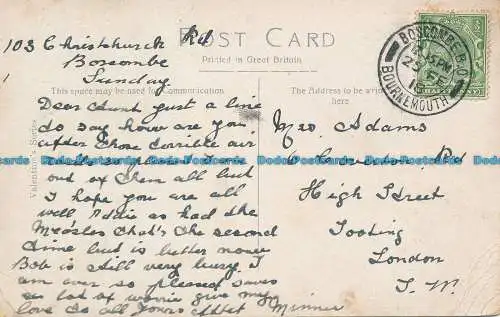 103 Christchurch Rd
Boscombe
Sunday
POST CARD
Printed in Great Britain
This space may be used for Communication
The Address to be written here
Valentine's Series
Dear Aunt just a line
to say how are you
after those terrible air
out of them all but
I hope you are all
well Addie as had the
Measles that's the second
time but is better now
Bob is still very busy I
am ever so pleased
so lot of worrie give my
love to all yours affet Minnie
Mrs Adams
6 Rd
High Street
Tooting
London
S.W.
BOSCOMBE B.O.
BOURNEMOUTH